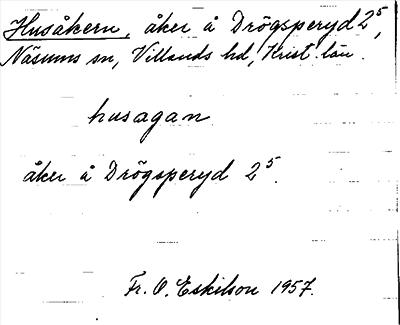 Husåkern, åker å Drögsperyd 2⁵,
Näsums sn, Villands hd, Krist. län.
husagan
åker å Drögsperyd 2⁵.
Fr. O. Eskilson 1957.